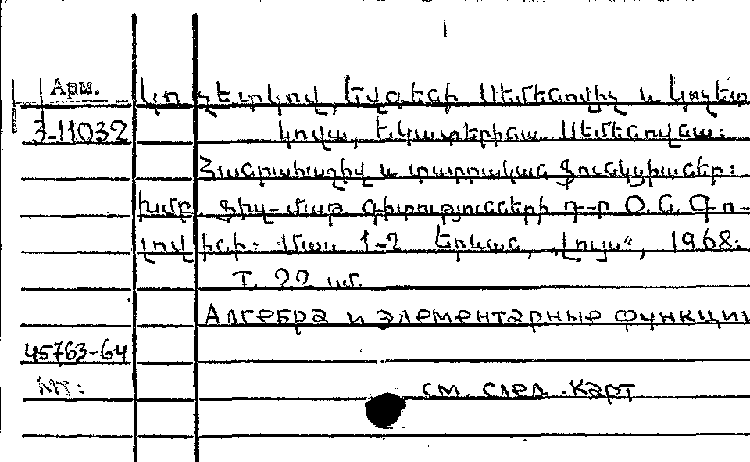 Арм. Կոչետկով, Եվգենի Սեմենովիչ և Կոչետ
3-11032 կովա, Եկատերինա Սեմենովնա:
Հանրահաշիվ և տարրական ֆունկցիաներ:
Խմբ. ֆիզ-մաթ գիտությունների դ-ր Օ. Ն. Գո-
լովինի: Մաս 1-2 Երևան, „Լույս“, 1968:
Т. 22 սմ.
Алгебра и элементарные функции
45763-64
см. след. карт